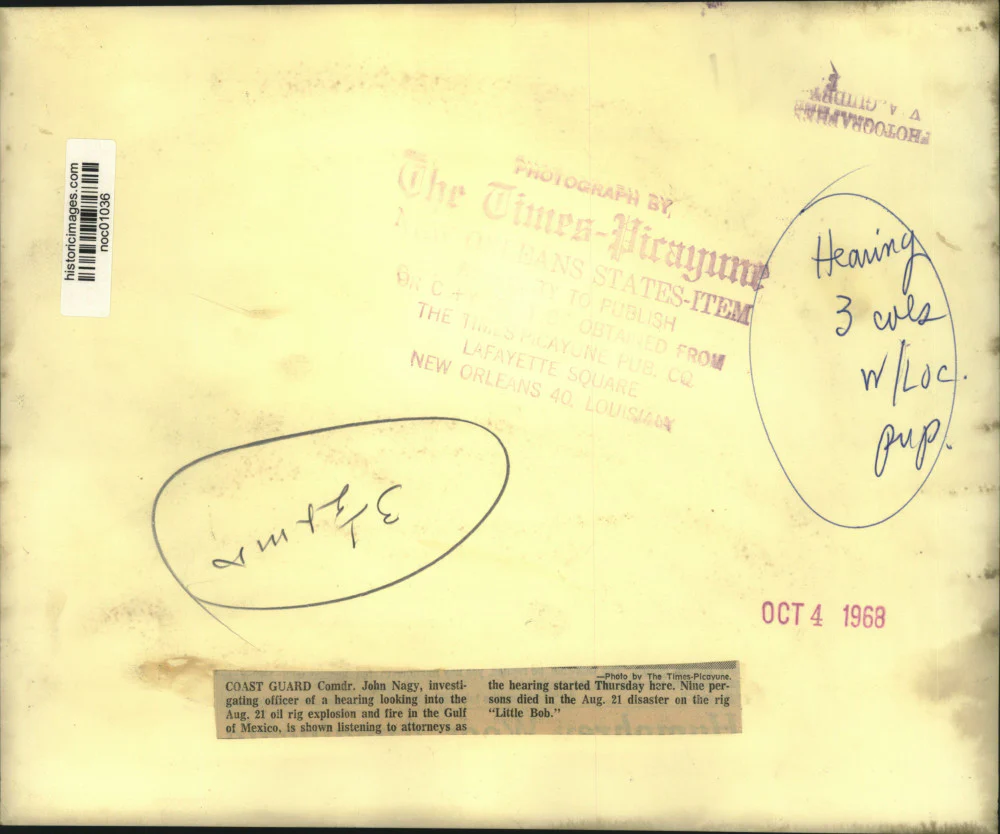 historicimages.com
noc01036
PHOTOGRAPHER
V. A. GUIDRY
PHOTOGRAPH BY
The Times-Picayune
NEW ORLEANS STATES-ITEM
TY TO PUBLISH
BE OBTAINED FROM
THE TIMES-PICAYUNE PUB. CO.
LAFAYETTE SQUARE
NEW ORLEANS 40, LOUISIANA
Hearing
3 cols
W/Loc.
pup.
3 1/2
OCT 4 1968
—Photo by The Times-Picayune.
COAST GUARD Comdr. John Nagy, investi-
gating officer of a hearing looking into the
Aug. 21 oil rig explosion and fire in the Gulf
of Mexico, is shown listening to attorneys as
the hearing started Thursday here. Nine per-
sons died in the Aug. 21 disaster on the rig
"Little Bob."